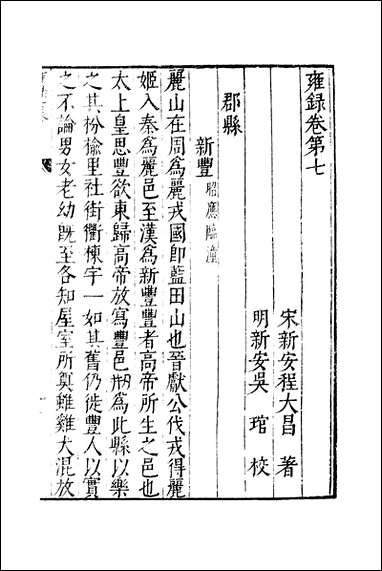 雍録卷第七
宋新安程大昌著
明新安吳琯校
郡縣
新豐昭應臨潼
麗山在周為麗戎國即藍田山也晉獻公伐戎得麗
姬入秦為麗邑至漢為新豐豐者高帝所生之邑也
太上皇思豐欲東歸高帝放寫豐邑剏為此縣以樂
之其枌榆里社街衢棟宇一如其舊仍徙豐人以實
之不論男女老幼既至各知屋室所奠雖雞犬混放